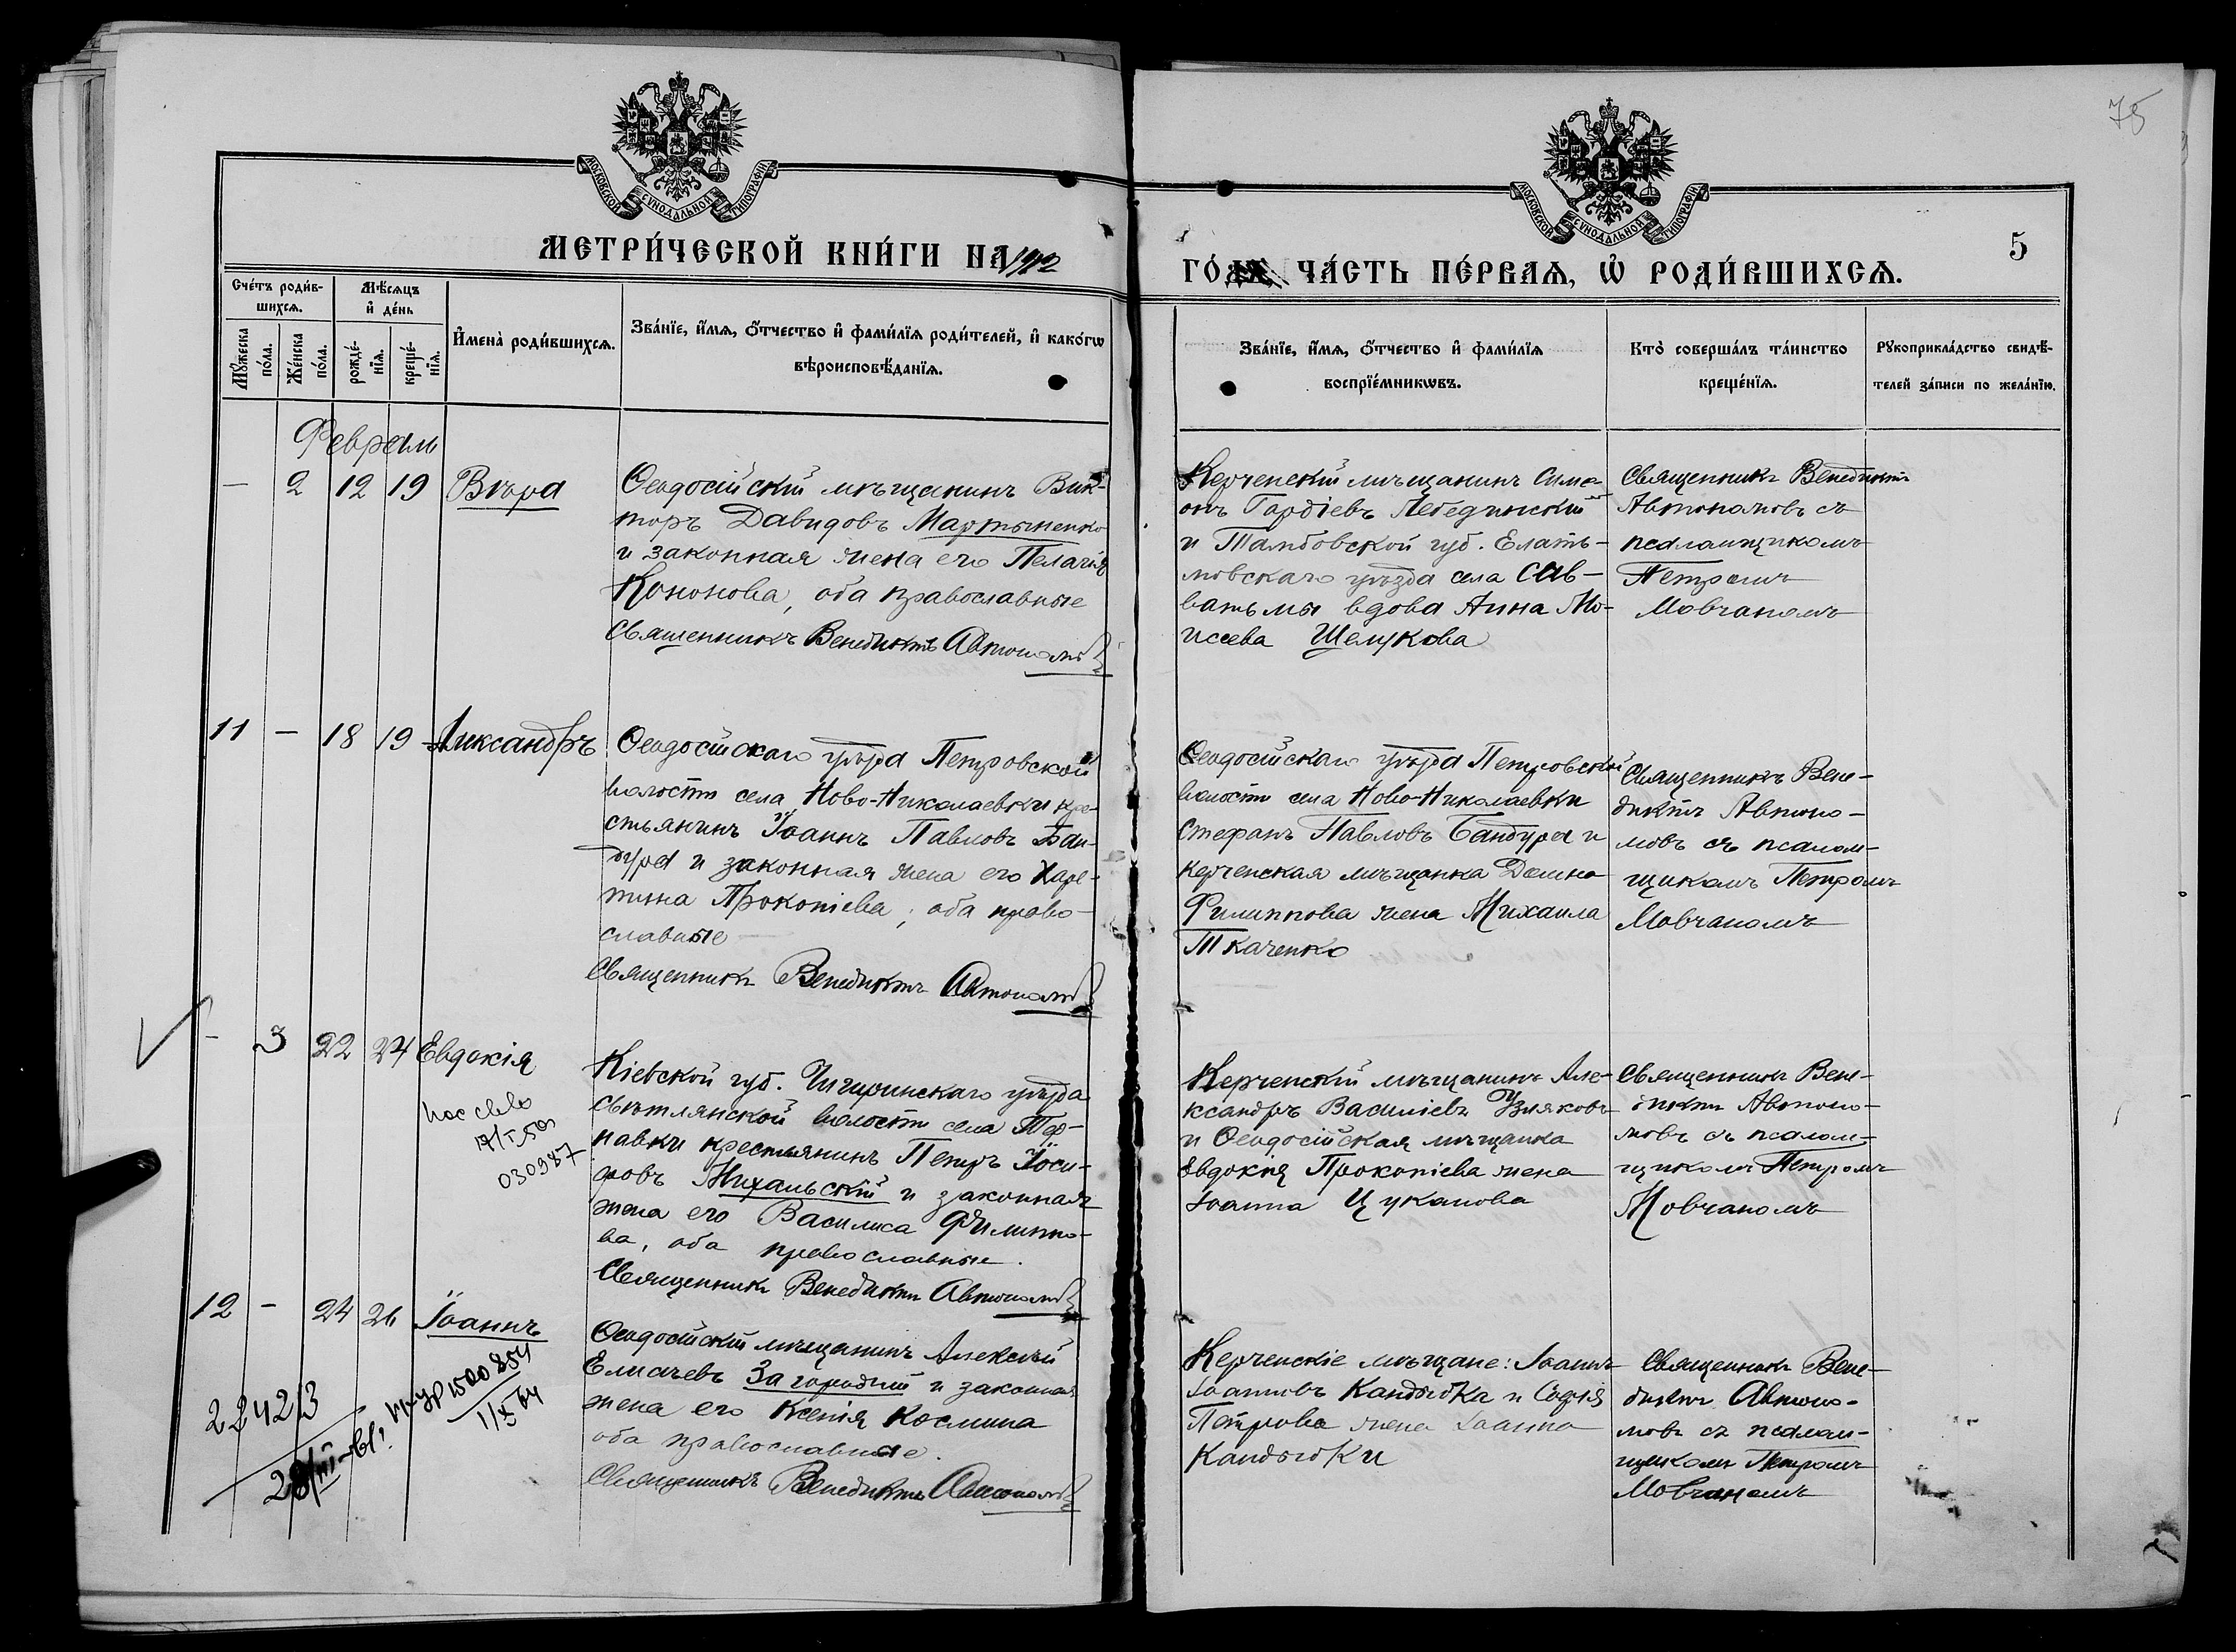 75
МОСКОВСКОЙ СУНОДАЛЬНОЙ ТИПОГРАФІИ
МОСКОВСКОЙ СУНОДАЛЬНОЙ ТИПОГРАФІИ
МЕТРИ́ЧЕСКОЙ КНИ́ГИ НА 1912
ГО́ ЧА́СТЬ ПЕ́РВАѦ, Ѡ҆ РОДИ́ВШИХСѦ.
5
Сче́тъ роди́в-
шихсѧ.
Мꙋ́жеска
по́ла.
Же́нска
по́ла.
Мѣ́сѧцъ
и҆ де́нь
рожде́-
нїѧ.
креще́-
нїѧ.
И҆мена̀ роди́вшихсѧ.
Зва́нїе, и҆́мѧ, ѻ҆́тчество и҆ фами́лїѧ роди́телей, и҆ како́гѡ
вѣроисповѣ́данїѧ.
Зва́нїе, и҆́мѧ, ѻ҆́тчество и҆ фами́лїѧ
воспрїе́мникѡвъ.
Кто̀ соверша́лъ та́инство
креще́нїѧ.
Рꙋкоприкла́дство свидѣ́-
телей за́писи по жела́нїю.
Февраль
— 2 12 19 Вѣра
Ѳеодосійскій мѣщанинъ Вик-
торъ Давидовъ Мартыненко
и законная жена его Пелагія
Кононова, оба православные
Священникъ Венедиктъ Автономовъ
Керченскій мѣщанинъ Симе-
онъ Гордіевъ Лебединскій
и Тамбовской губ. Елать-
мовскаго уѣзда села Сав-
ватьмы вдова Анна Мо-
исеева Шелукова
Священникъ Венедиктъ
Автономовъ съ
псаломщикомъ
Петромъ
Мовчаномъ
11 — 18 19 Александръ
Ѳеодосійскаго уѣзда Петровской
волости села Ново-Николаевки кре-
стьянинъ Іоаннъ Павловъ Бан-
дура и законная жена его Харе-
тина Прокопіева; оба право-
славные
Священникъ Венедиктъ Автономовъ
Ѳеодосійскаго уѣзда Петровской
волости села Ново-Николаевки
Стефанъ Павловъ Бандура и
керченская мѣщанка Домна
Филиппова жена Михаила
Ткаченко
Священникъ Вене-
диктъ Автоно-
мовъ съ псалом-
щикомъ Петромъ
Мовчаномъ
— 3 22 24 Евдокія
030987
Кіевской губ. Чигиринскаго уѣзда
Свѣтлянской волости села
крестьянинъ Петръ Іоси-
фовъ Михальскій и законная
жена его Василиса Филиппо-
ва, оба православные.
Священникъ Венедиктъ Автономовъ
Керченскій мѣщанинъ Але-
ксандръ Василіевъ
и Ѳеодосійская мѣщанка
Евдокія Прокопіева жена
Іоанна Цуканова
Священникъ Вене-
диктъ Автоно-
мовъ съ псалом-
щикомъ Петромъ
Мовчаномъ
12 — 24 26 Іоаннъ
22423
1500854
1/X 64
Ѳеодосійскій мѣщанинъ Алексѣй
Елисѣевъ Загородній и законная
жена его Ксенія Космина
оба православные.
Священникъ Венедиктъ Автономовъ
Керченскіе мѣщане: Іоаннъ
Іоанновъ Кандыбка и Софія
Петрова жена Іоанна
Кандыбки
Священникъ Вене-
диктъ Автоно-
мовъ съ псалом-
щикомъ Петромъ
Мовчаномъ